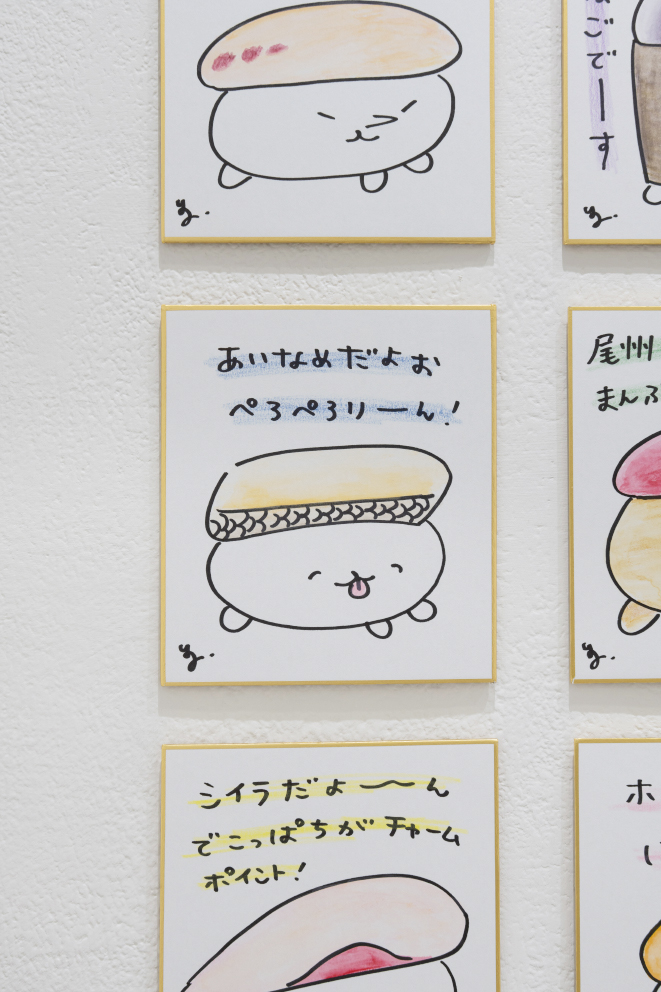 ごでーす
あいなめだよぉ
ぺろぺろりーん!
尾州
まんふ
シイラだよ〜ん
でこっぱちがチャーム
ポイント!
ホ
い